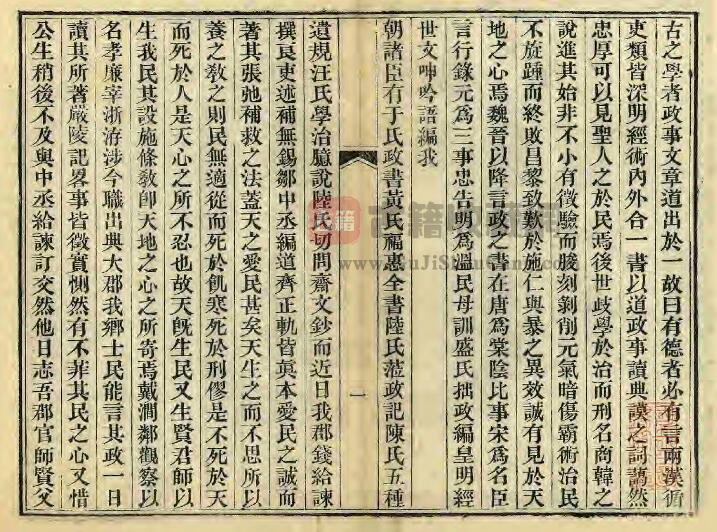 古之學者政事文章道出於一故曰有德者必有言兩漢循
吏類皆深明經術內外合一書以道政事讀典謨之詞藹然
忠厚可以見聖人之於民焉後世歧學於治而刑名商韓之
說進其始非不小有徵驗而朘刻剝削元氣暗傷霸術治民
不旋踵而終敗昌黎致歎於施仁與暴之異效誠有見於天
地之心焉魏晉以降言政之書在唐爲棠陰比事宋爲名臣
言行錄元爲三事忠告明爲溫民母訓盛氏拙政編皇明經
世文呻吟語編我
朝諸臣有于氏政書黃氏福惠全書陸氏蒞政記陳氏五種
遺規汪氏學治臆說陸氏切問齋文鈔而近日我郡錢給諫
撰良吏述補無錫鄒中丞編道齊正軌皆眞本愛民之誠而
著其張弛補救之法蓋天之愛民甚矣天生之而不思所以
養之敎之則民無適從而死於飢寒死於刑僇是不死於天
而死於人是天心之所不忍也故天旣生民又生賢君師以
生我民其設施條敎卽天地之心之所寄焉戴澗鄰觀察以
名孝廉宰浙洊涉今職出典大郡我鄉士民能言其政一日
讀其所著嚴陵記畧事皆徵實惻然有不菲其民之心又惜
公生稍後不及與中丞給諫訂交然他日志吾郡官師賢父
一